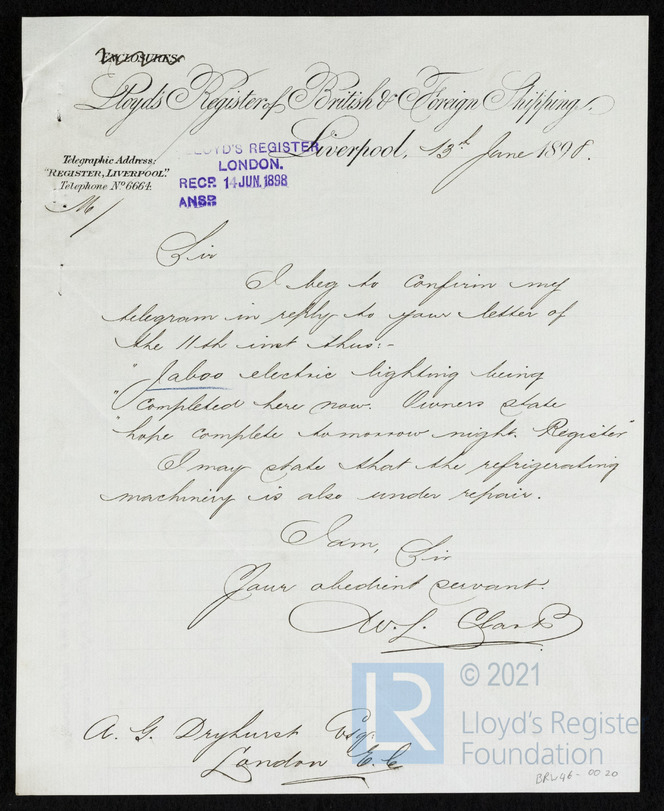 ENCLOSURES.
Lloyd's Register of British & Foreign Shipping.
Liverpool, 13th June 1898.
Telegraphic Address:
"REGISTER, LIVERPOOL."
Telephone No 6664.
LLOYD'S REGISTER
LONDON.
RECD. 14 JUN. 1898
ANSD
M/
Sir
I beg to confirm my
telegram in reply to your letter of
the 11th inst thus:-
"Jaboo electric lighting being
"completed here now. Owners state
"hope complete tomorrow night. Register"
I may state that the refrigerating
machinery is also under repair.
I am, Sir
Your obedient servant.
W. L. Clark
A. G. Dryhurst Esq.
London E.C
LR
© 2021
Lloyd's Registe
Foundation
BRL46-0020